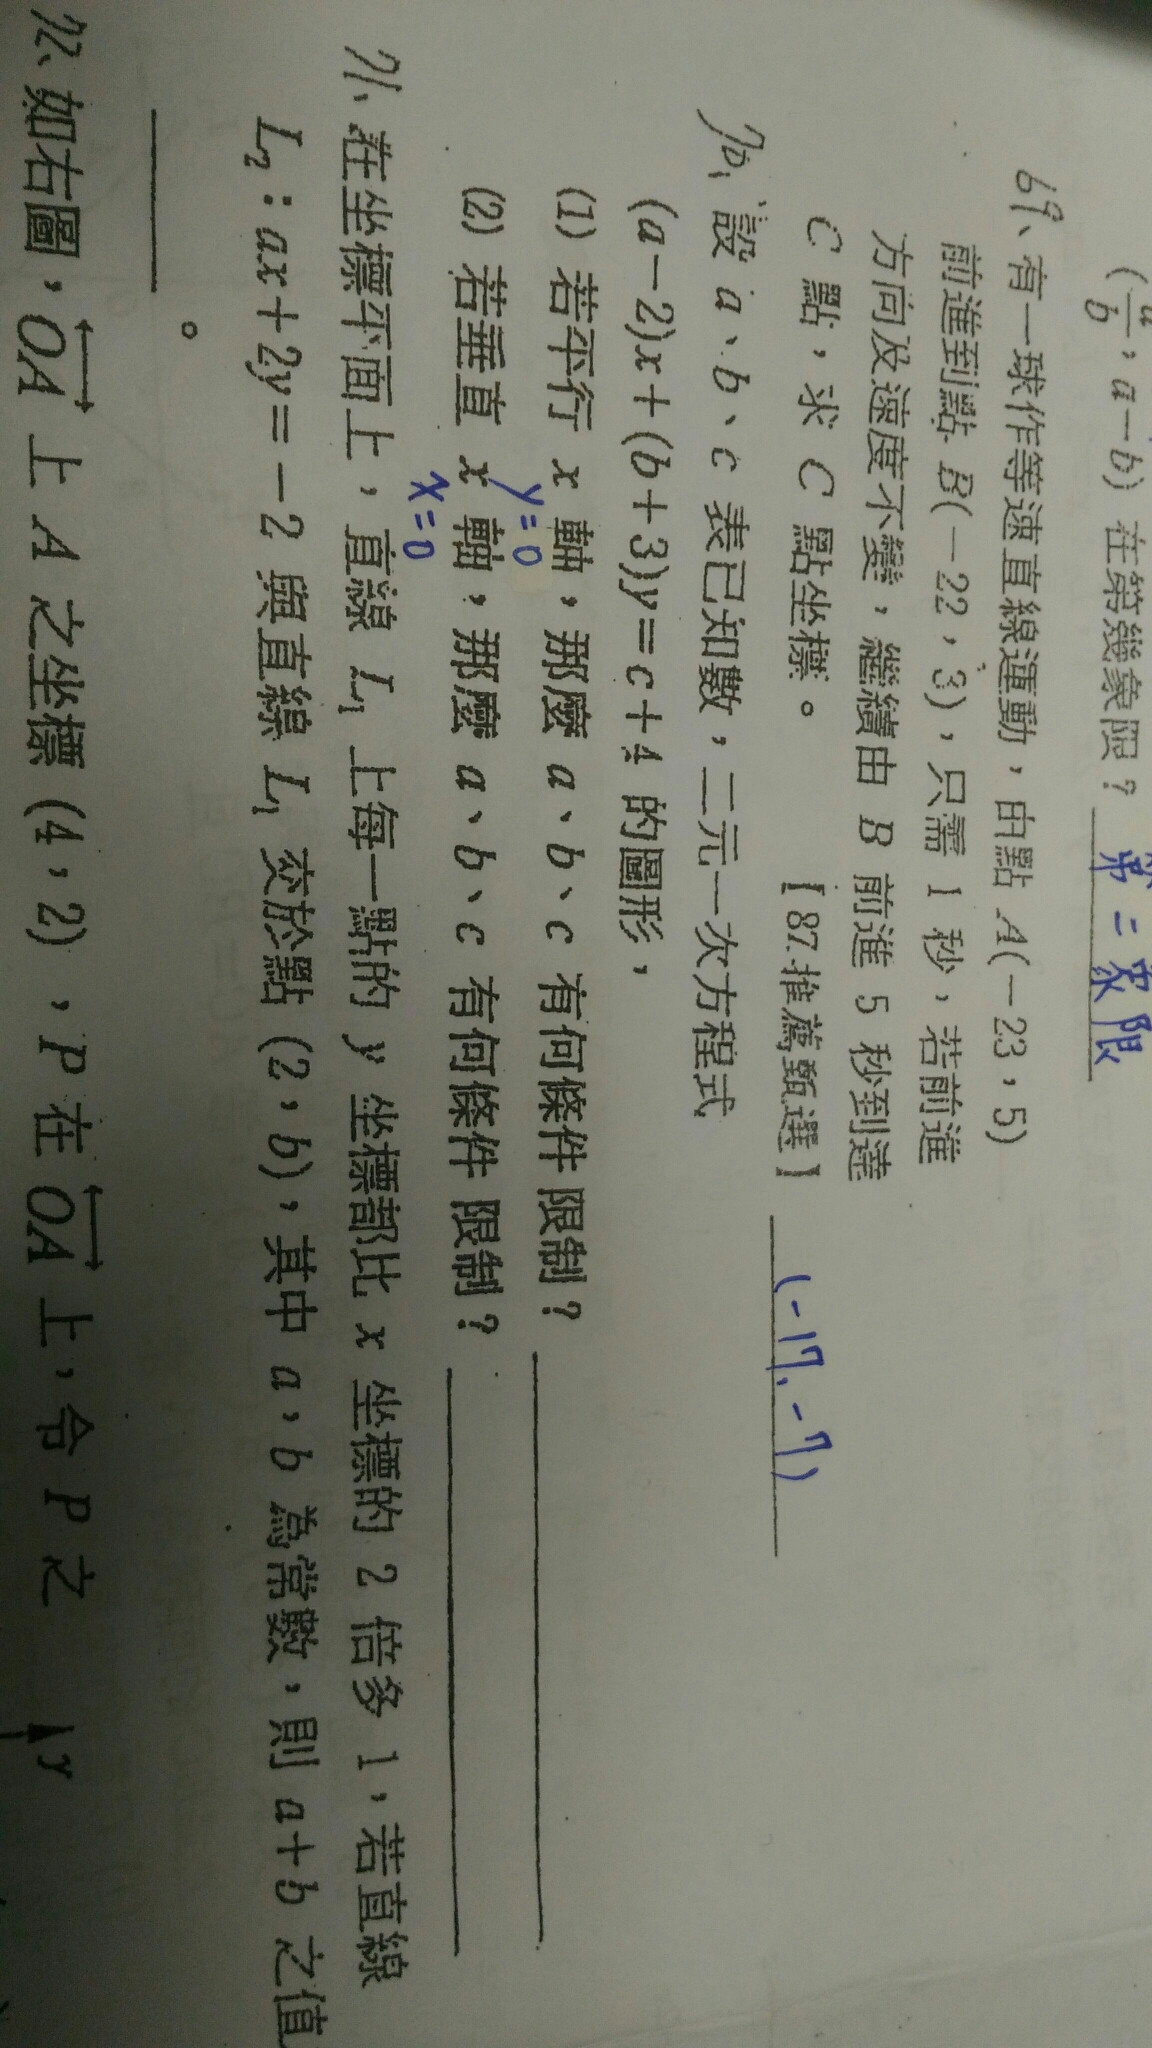 (a/b, a-b) 在第幾象限? 第二象限
69、有一球作等速直線運動,由點 A(-23,5)
前進到點 B(-22,3),只需 1 秒,若前進
方向及速度不變,繼續由 B 前進 5 秒到達
C 點,求 C 點坐標。 【87.推薦甄選】 (-17,-7)
70、設 a、b、c 表已知數,二元一次方程式
(a-2)x+(b+3)y=c+4 的圖形,
(1) 若平行 x 軸,那麼 a、b、c 有何條件限制?
y=0
(2) 若垂直 x 軸,那麼 a、b、c 有何條件限制?
x=0
71、在坐標平面上,直線 L₁ 上每一點的 y 坐標都比 x 坐標的 2 倍多 1,若直線
L₂:ax+2y=-2 與直線 L₁ 交於點 (2,b),其中 a,b 為常數,則 a+b 之值
。
72、如右圖,OA 上 A 之坐標 (4,2),P 在 OA 上,令 P 之
y